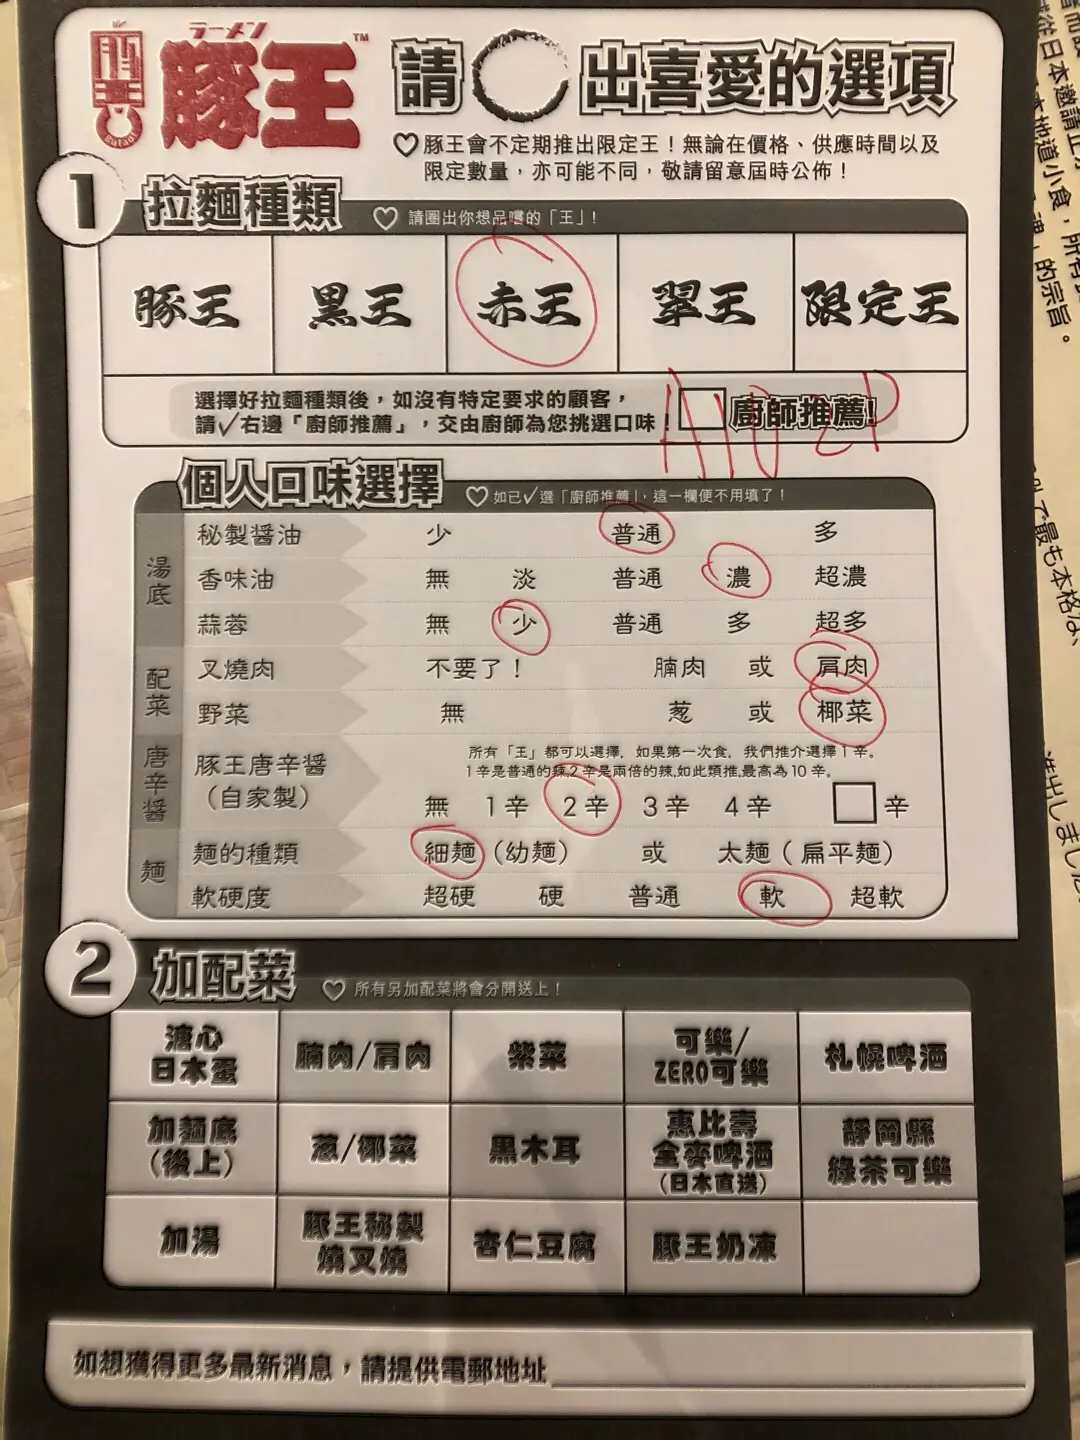 ラーメン
豚王™
Butao!
請○出喜愛的選項
♡豚王會不定期推出限定王！無論在價格、供應時間以及
限定數量，亦可能不同，敬請留意屆時公佈！
1 拉麵種類 ♡ 請圈出你想品嚐的「王」！
豚王 黑王 赤王 翠王 限定王
選擇好拉麵種類後，如沒有特定要求的顧客，
請✓右邊「廚師推薦」，交由廚師為您挑選口味！ 廚師推薦!
個人口味選擇 ♡如已✓選「廚師推薦」，這一欄便不用填了！
湯底
秘製醤油 少 普通 多
香味油 無 淡 普通 濃 超濃
蒜蓉 無 少 普通 多 超多
配菜
叉燒肉 不要了！ 腩肉 或 肩肉
野菜 無 葱 或 椰菜
唐辛醤
豚王唐辛醤
（自家製）
所有「王」都可以選擇，如果第一次食，我們推介選擇1辛。
1辛是普通的辣,2辛是兩倍的辣,如此類推,最高為10辛。
無 1辛 2辛 3辛 4辛 □辛
麵
麵的種類 細麵（幼麵） 或 太麵（扁平麵）
軟硬度 超硬 硬 普通 軟 超軟
2 加配菜 ♡ 所有另加配菜將會分開送上！
溏心
日本蛋
腩肉/肩肉
紫菜
可樂/
ZERO可樂
札幌啤酒
加麵底
（後上）
葱/椰菜
黑木耳
惠比壽
全麥啤酒
（日本直送）
靜岡縣
綠茶可樂
加湯
豚王秘製
燒叉燒
杏仁豆腐
豚王奶凍
如想獲得更多最新消息，請提供電郵地址